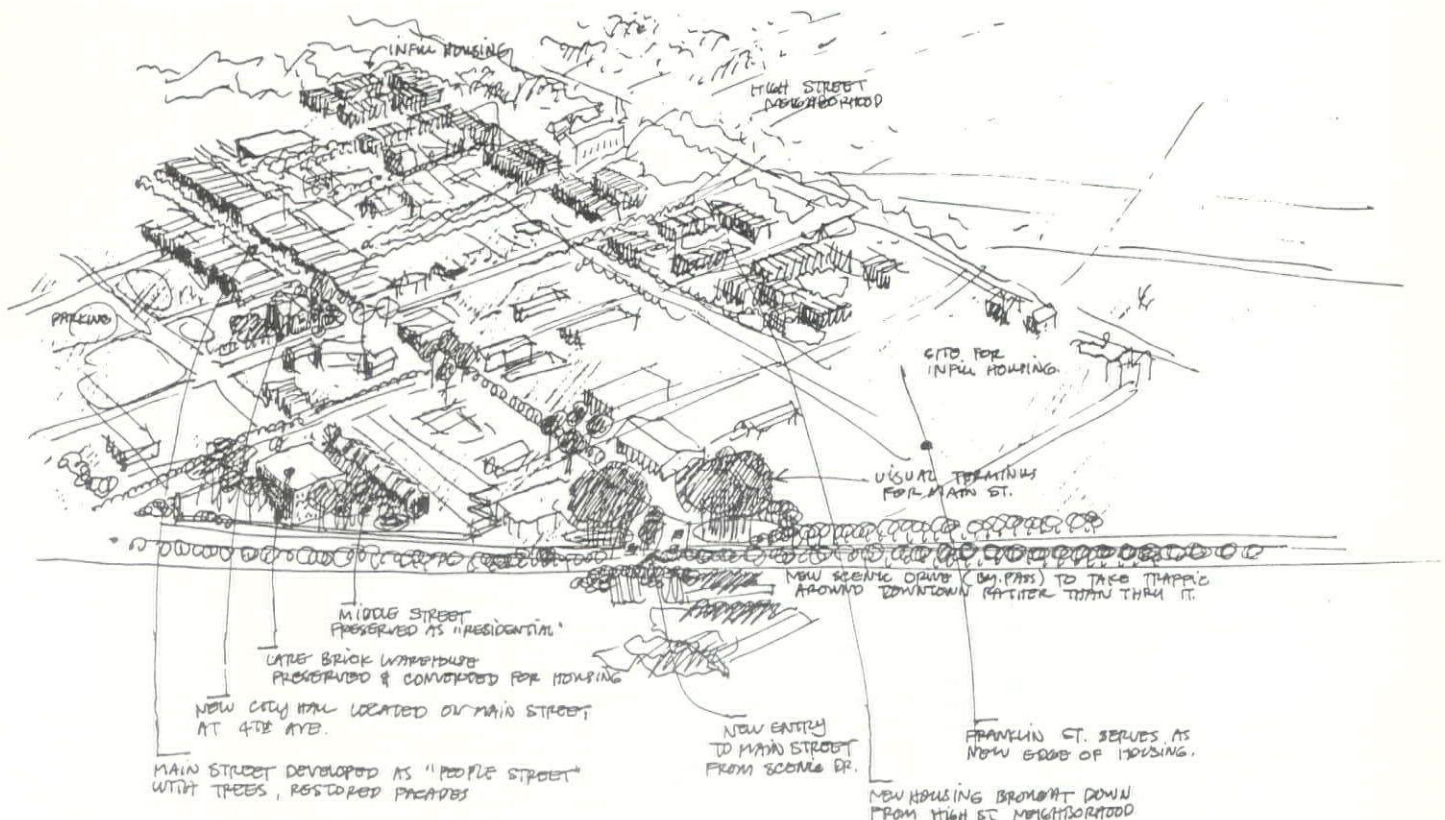 INFILL HOUSING
HIGH STREET
NEIGHBORHOOD
PARKING
SITE FOR
INFILL HOUSING.
VISUAL TERMINUS
FOR MAIN ST.
NEW SCENIC DRIVE (BY.PASS) TO TAKE TRAFFIC
AROUND DOWNTOWN RATHER THAN THRU IT.
MIDDLE STREET
PRESERVED AS "RESIDENTIAL"
LARGE BRICK WAREHOUSE
PRESERVED & CONVERTED FOR HOUSING
NEW CITY HALL LOCATED ON MAIN STREET
AT 4TH AVE.
MAIN STREET DEVELOPED AS "PEOPLE STREET"
WITH TREES, RESTORED FACADES
NEW ENTRY
TO MAIN STREET
FROM SCENIC DR.
FRANKLIN ST. SERVES AS
NEW EDGE OF HOUSING.
NEW HOUSING BROUGHT DOWN
FROM HIGH ST. NEIGHBORHOOD